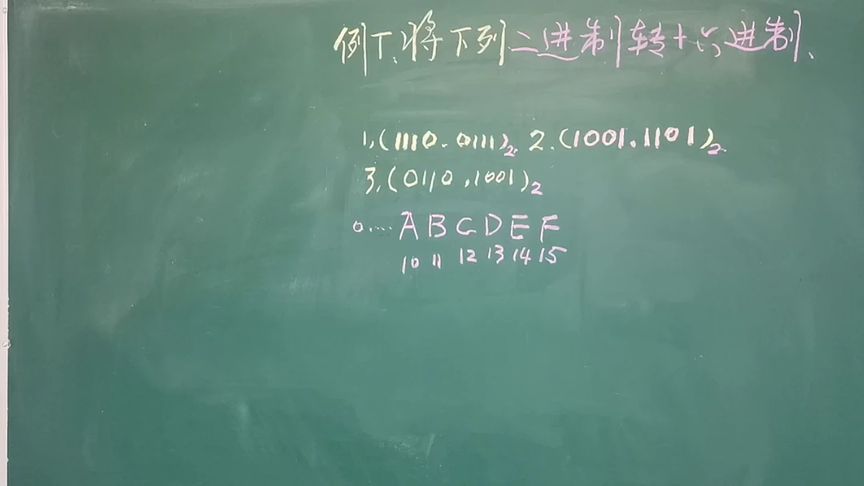 例丁、将下列二进制转十六进制、
1,(1110.0111)₂ 2.(1001.1101)₂
3,(0110.1001)₂
0.... A B C D E F
10 11 12 13 14 15